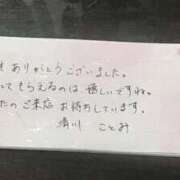 ありがとうございました。
てもらえるのは 嬉しいですね。
たのご来店 お待ちしています。
清川 ことみ